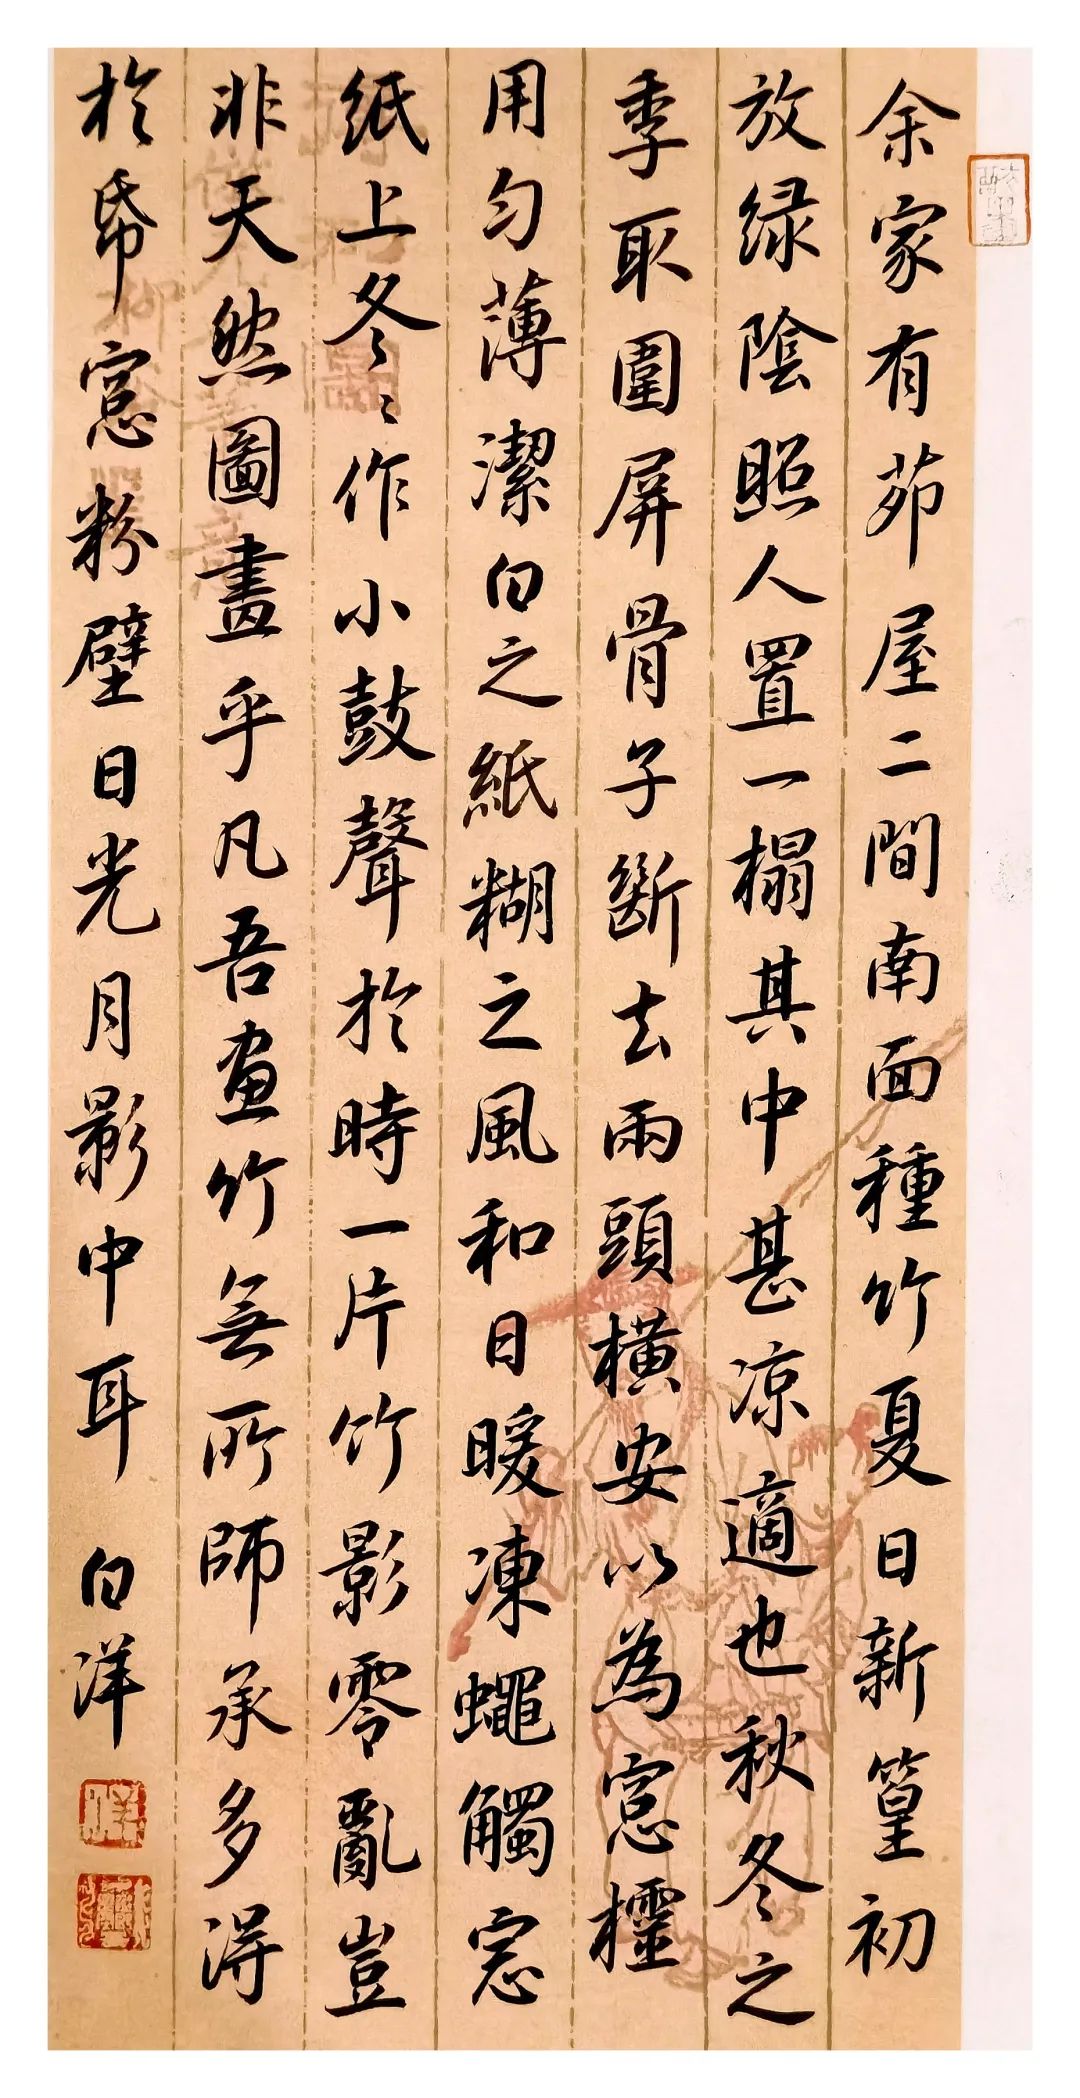 余家有茆屋二間南面種竹夏日新篁初
放绿陰照人置一榻其中甚凉適也秋冬之
季取圍屏骨子斷去兩頭橫安以為窓櫺
用匀薄潔白之紙糊之風和日暖凍蠅觸窓
纸上冬冬作小鼓聲於時一片竹影零亂豈
非天然圖畫乎凡吾畫竹無所師承多得
於帋窓粉壁日光月影中耳 白洋